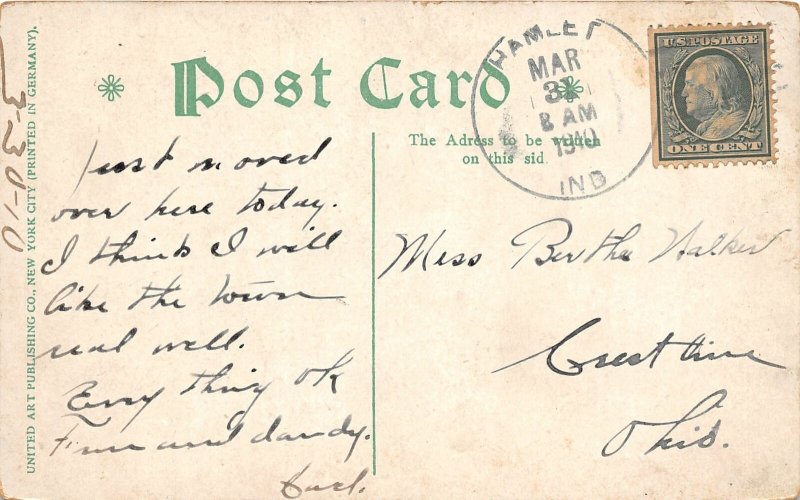 Post Card
The Adress to be written
on this sid
HAMLET
MAR
31
8 AM
1910
IND
U.S. POSTAGE
ONE CENT
3-30-10
UNITED ART PUBLISHING CO., NEW YORK CITY (PRINTED IN GERMANY).
Just moved
over here today.
I think I will
like the town
real well.
Every thing OK
Fine and dandy.
Miss Bertha Walker
Crestline
Ohio.